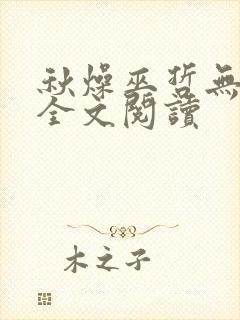 秋燥巫哲無
全文閱讀
木之子